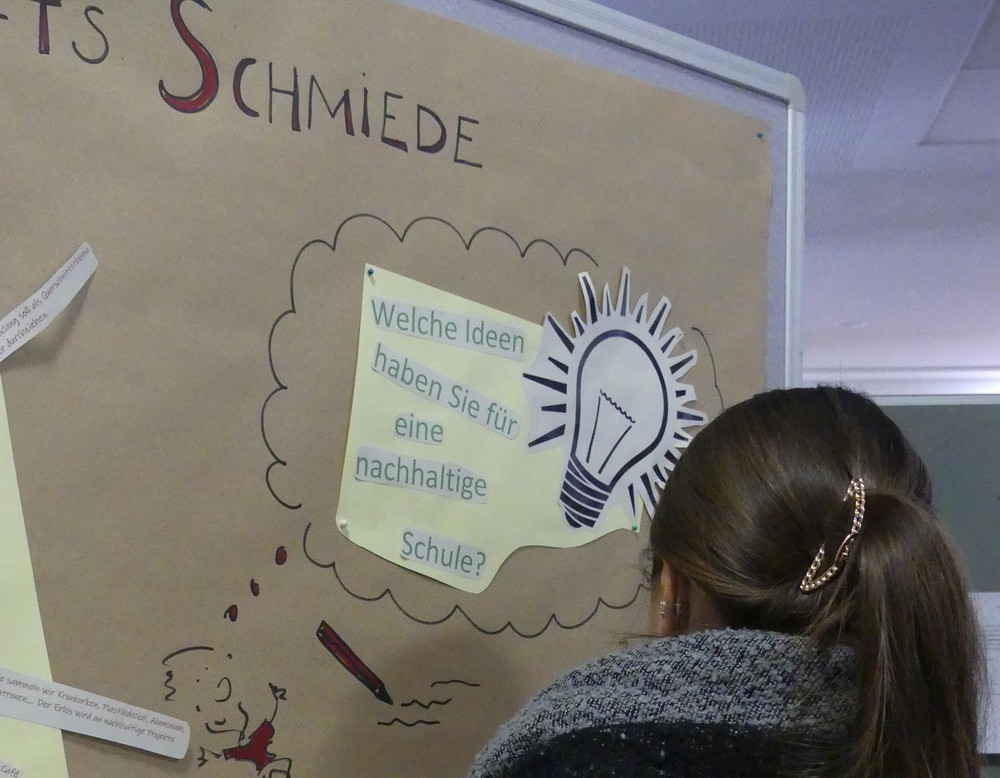 TS SCHMIEDE
soll als Querschnittsthema
durchziehen.
Welche Ideen
haben Sie für
eine
nachhaltige
Schule?
sammeln wir Kronkorken, Plastikdeckel, Aluminium,
Der Erlös wird an nachhaltige Projekte
Café